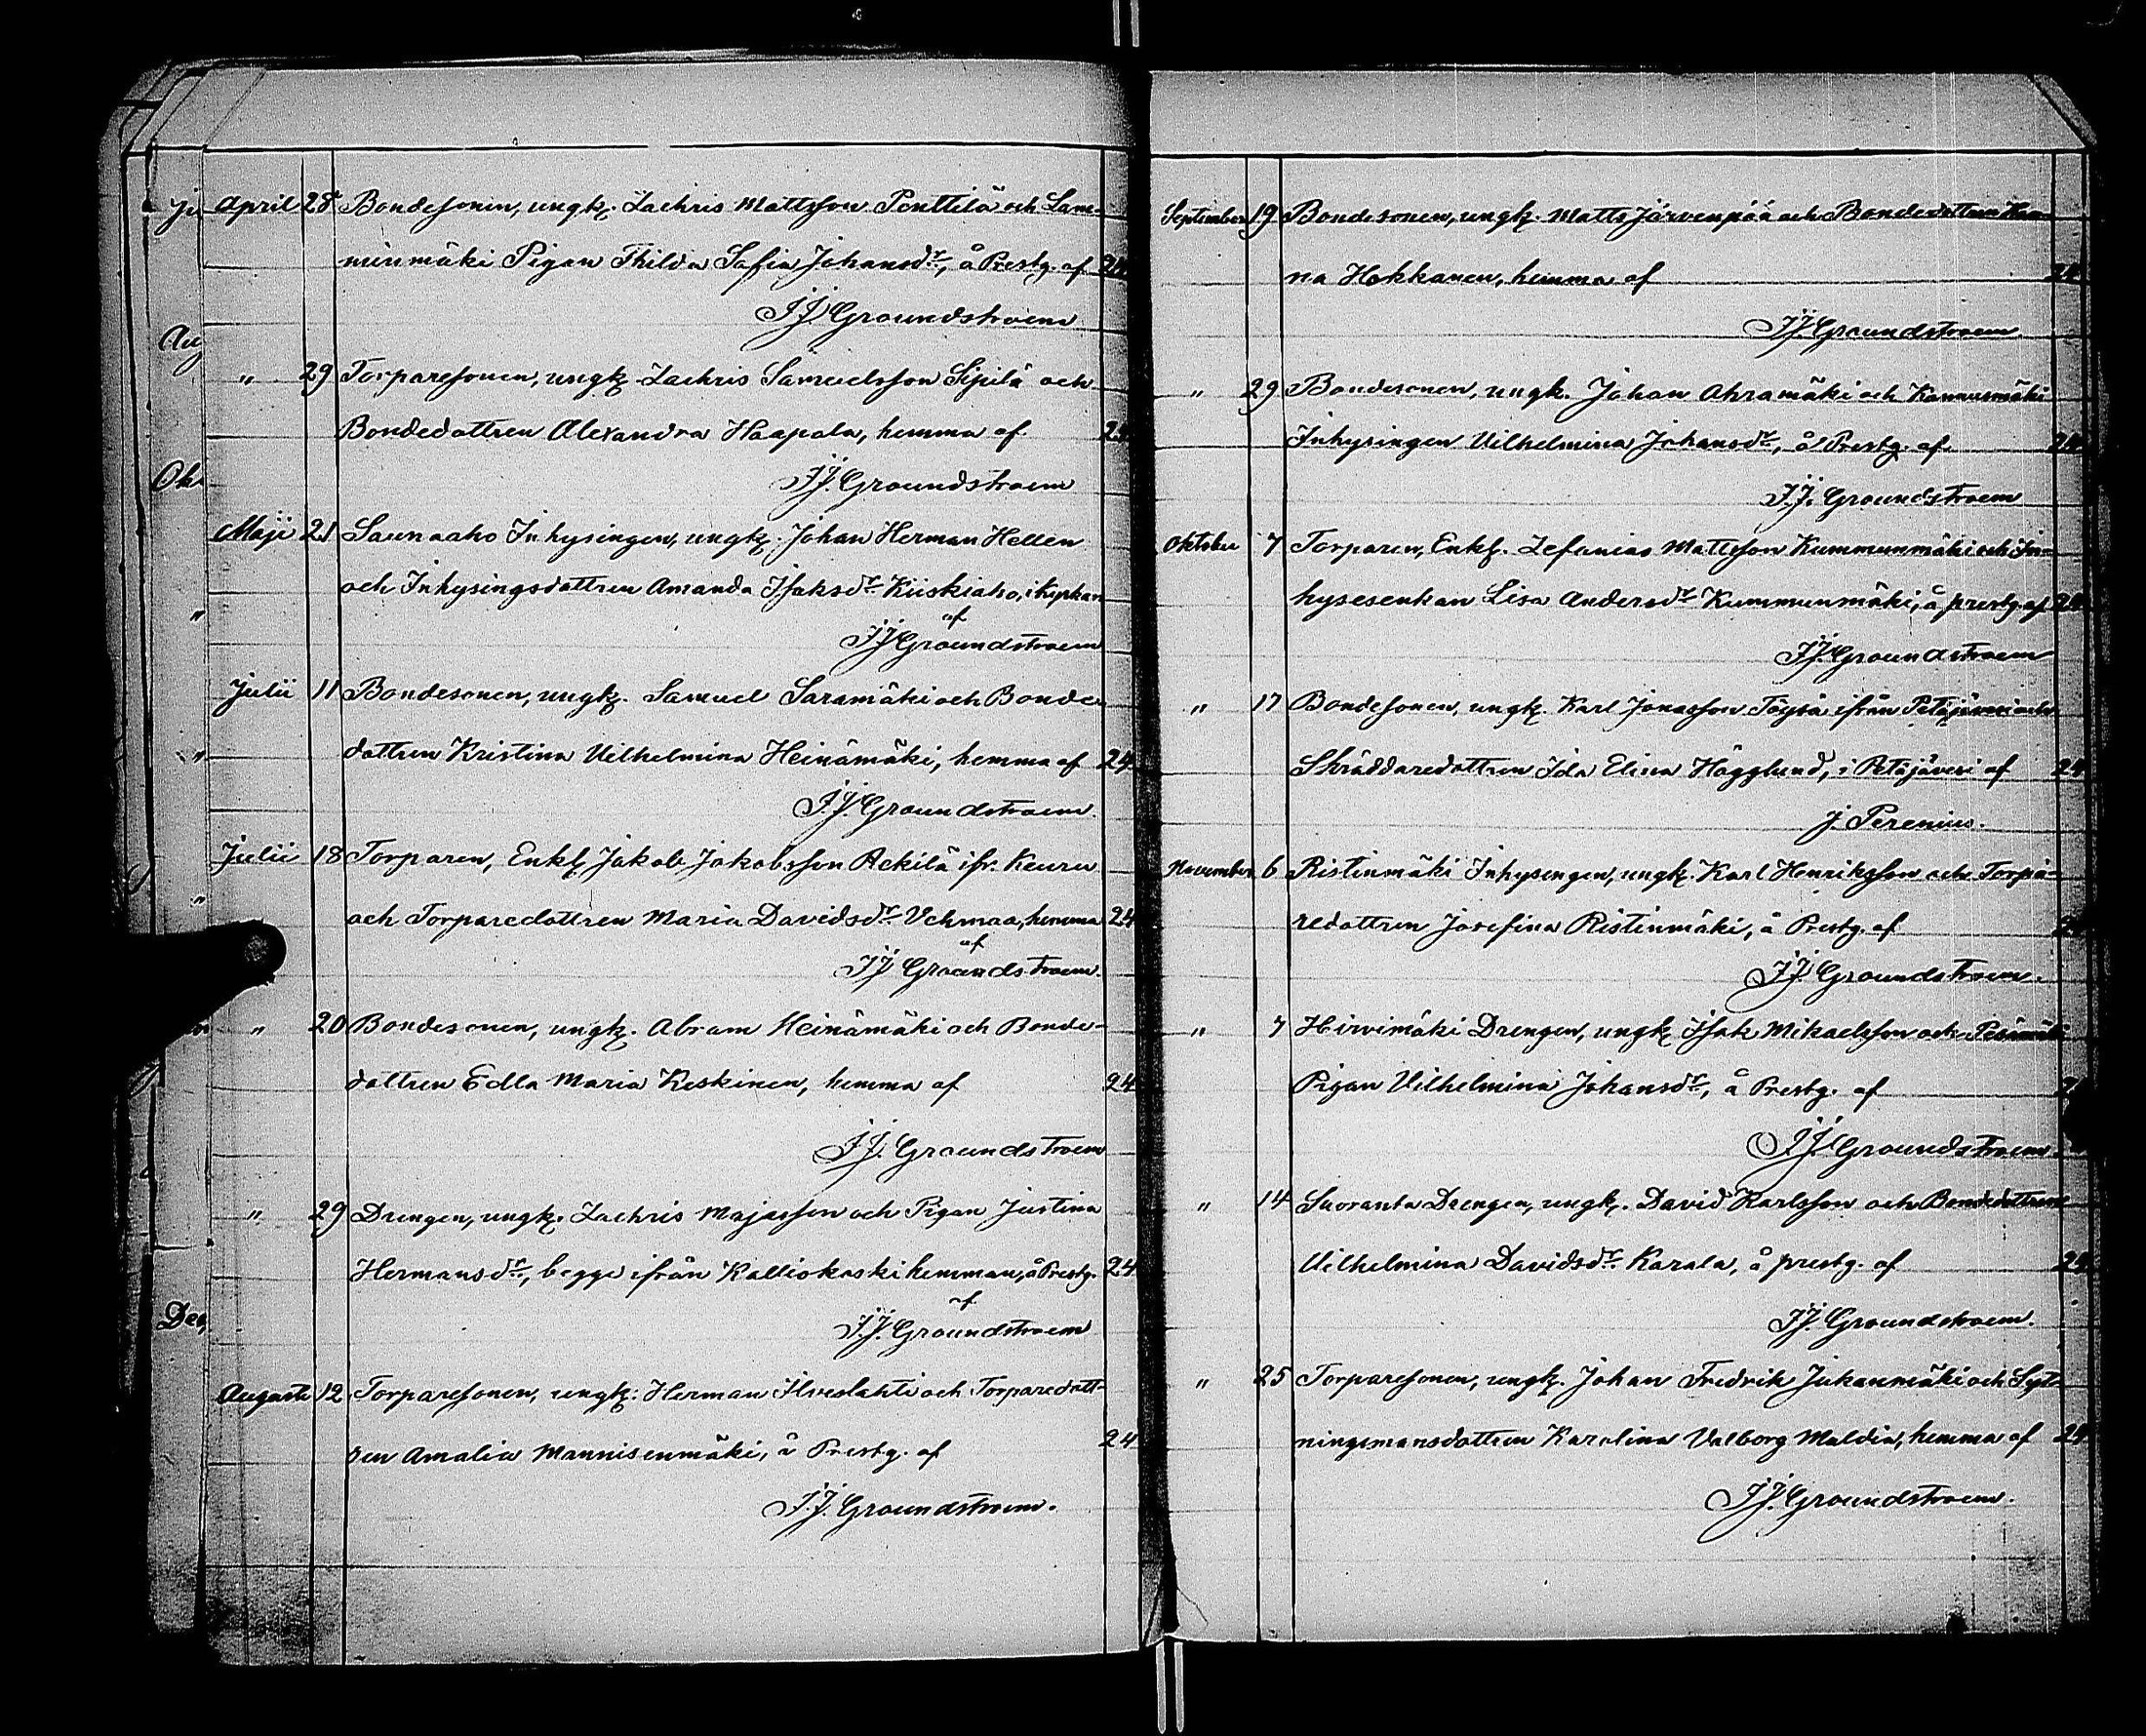 April 28 Bondesonen, ungk. Zachris Mattsson Penttilä och Lam-
minmäki Pigan Thilda Sofia Johansdr., å Prestg. af 24
J.J. Groundstroem
" 29 Torparesonen, ungk. Zachris Samuelsson Sipilä och
Bondedottren Alexandra Haapala, hemma af 24
J.J. Groundstroem
Maji 21 Saunaaho Inhysingen, ungk. Johan Herman Hellen
och Inhysingsdottren Amanda Isaksdr. Kiiskiaho, i Kyrkan
af
J.J. Groundstroem
Julii 11 Bondesonen, ungk. Samuel Saramäki och Bonde-
dottren Kristina Vilhelmina Heinämäki, hemma af 24
J.J. Groundstroem.
Julii 18 Torparen, Enkl. Jakob Jakobsson ifr. Keuru
och Torparedottren Maria Davidsdr. Vehmaa, hemma 24
af
J.J. Groundstroem.
" 20 Bondesonen, ungk. Abram Heinämäki och Bonde-
dottren Edla Maria Keskinen, hemma af 24
J.J. Groundstroem
" 29 Drengen, ungk. Zachris Majasson och Pigan Justina
Hermansdr., begge ifrån Kalliokoski hemman, å Prestg. 24
af
J.J. Groundstroem
Augusti 12 Torparesonen, ungk. Herman Ilveslahti och Torparedott-
ren Amalia Mannisenmäki, å Prestg. af 24
J.J. Groundstroem.
September 19 Bondesonen, ungk. Matts Järvenpää och Bondedottren Han-
na Hokkanen, hemma af 24
J.J. Groundstroem.
" 29 Bondesonen, ungk. Johan Ahramäki och Kannusmäki
Inhysingen Vilhelmina Johansdr., å Prestg. af 24
J.J. Groundstroem
Oktober 7 Torparen, Enkl. Zefanias Mattsson Kummunmäki och In-
hysesenkan Lisa Andersdr. Kummunmäki, å prestg. af 24
J.J. Groundstroem
" 17 Bondesonen, ungk. Karl Jonasson Töysä ifrån Petäjävesi och
Skräddaredottren Ida Elina Hägglund, i Petäjävesi af 24
J. Perenius.
November 6 Ristinmäki Inhysingen, ungk. Karl Henriksson och Torpa-
redottren Josefina Ristinmäki, å Prestg. af 24
J.J. Groundstroem.
" 7 Hirvimäki Drengen, ungk. Isak Mikaelsson och Pesämäki
Pigan Vilhelmina Johansdr., å Prestg. af
J.J. Groundstroem.
" 14 Suoranta Drengen, ungk. David Karlsson och Bondedottren
Vilhelmina Davidsdr. Karala, å prestg. af 24
J.J. Groundstroem.
" 25 Torparesonen, ungk. Johan Fredrik Jukanmäki och Syt-
ningsmansdottren Karolina Valborg Maldia, hemma af 24
J.J. Groundstroem.